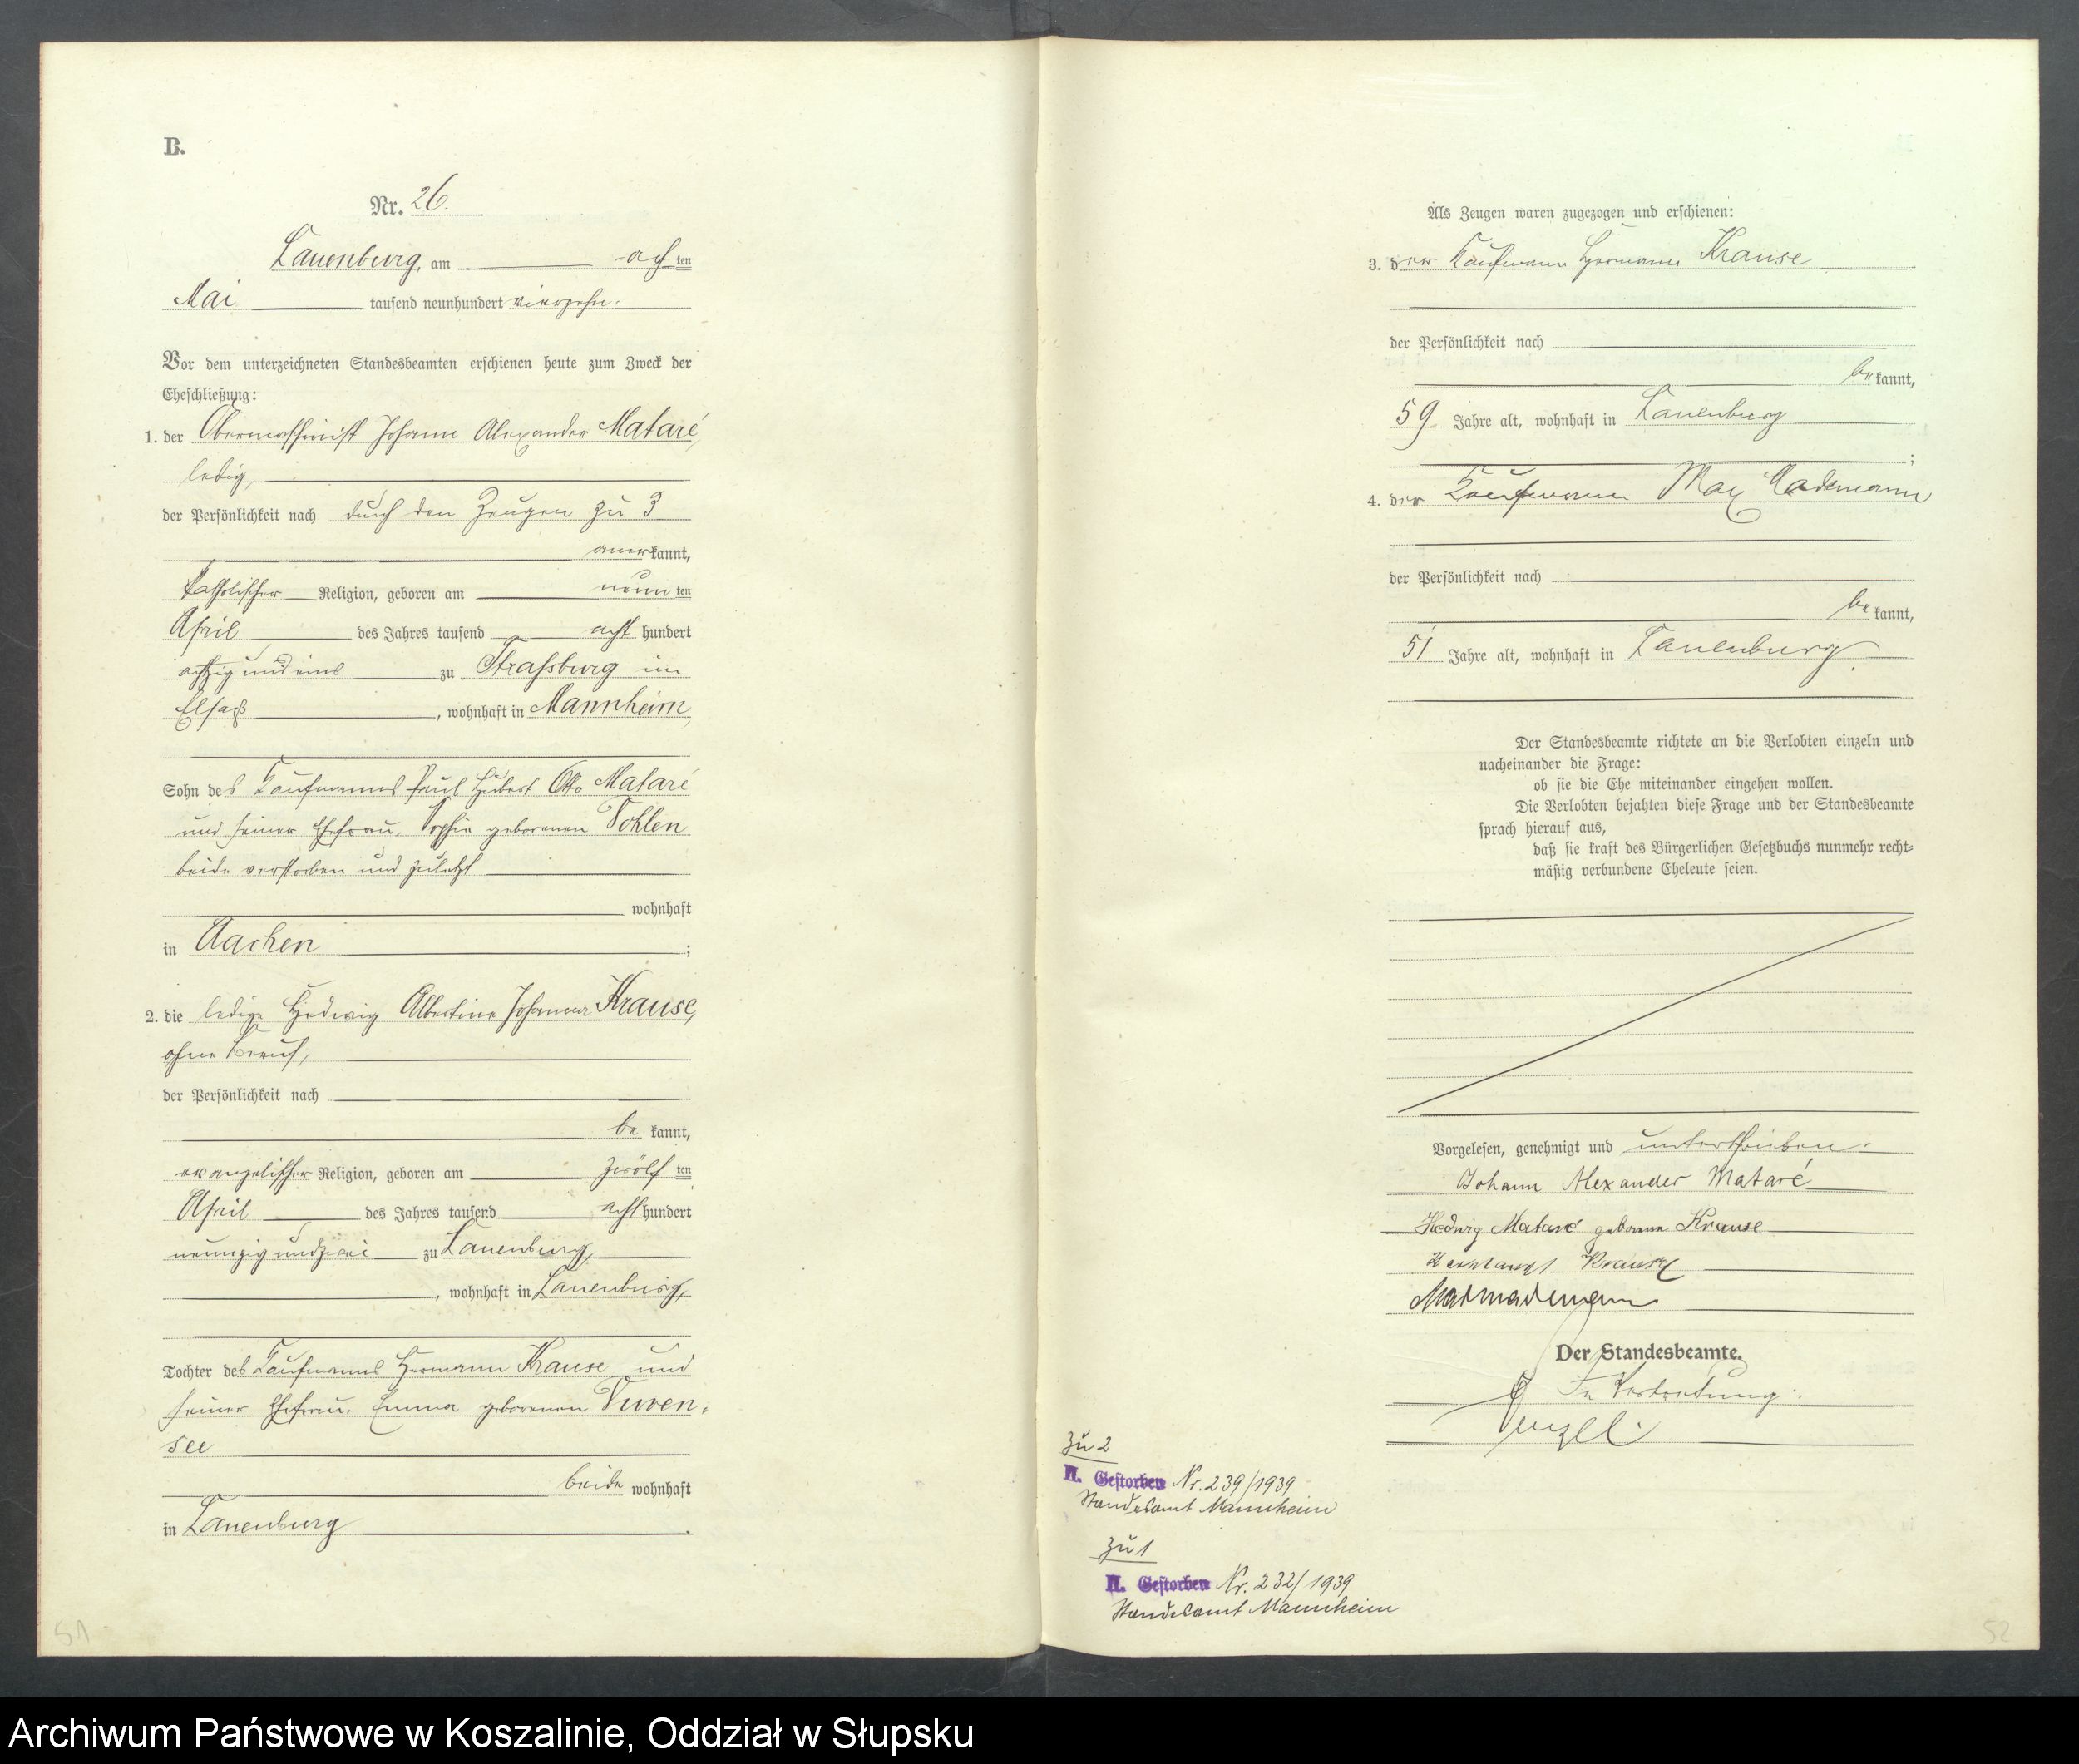 B.
Nr. 26.
Lauenburg, am achten
Mai tausend neunhundert vierzehn.
Vor dem unterzeichneten Standesbeamten erschienen heute zum Zweck der
Eheschließung:
1. der Obermaschinist Johann Alexander Mataré,
ledig,
der Persönlichkeit nach durch den Zeugen zu 3
anerkannt,
katholischer Religion, geboren am neunten
April des Jahres tausend acht hundert
achtzig und eins zu Strassburg im
Elsaß, wohnhaft in Mannheim,
Sohn des Kaufmanns Paul Hubert Otto Mataré
und seiner Ehefrau, Sophie geborenen Tohlen
beide verstorben und zuletzt
wohnhaft
in Aachen;
2. die ledige Hedwig Albertine Johanna Krause,
ohne Beruf,
der Persönlichkeit nach
bekannt,
evangelischer Religion, geboren am zwölften
April des Jahres tausend acht hundert
neunzig und zwei zu Lauenburg,
, wohnhaft in Lauenburg,
Tochter des Kaufmanns Hermann Krause und
seiner Ehefrau, Emma geborenen
see
beide wohnhaft
in Lauenburg.
51
Als Zeugen waren zugezogen und erschienen:
3. der Kaufmann Hermann Krause
der Persönlichkeit nach
bekannt,
59 Jahre alt, wohnhaft in Lauenburg
;
4. der Kaufmann Max Mademann
der Persönlichkeit nach
bekannt,
51 Jahre alt, wohnhaft in Lauenburg.
Der Standesbeamte richtete an die Verlobten einzeln und
nacheinander die Frage:
ob sie die Ehe miteinander eingehen wollen.
Die Verlobten bejahten diese Frage und der Standesbeamte
sprach hierauf aus,
daß sie kraft des Bürgerlichen Gesetzbuchs nunmehr recht-
mäßig verbundene Eheleute seien.
Vorgelesen, genehmigt und unterschrieben.
Johann Alexander Mataré
Hedwig Mataré geborene Krause
Hermann Krause
Max Mademann
Der Standesbeamte.
In Vertretung:
zu 2
II. Gestorben Nr. 239/1939
Standesamt Mannheim
zu 1
II. Gestorben Nr. 232/1939
Standesamt Mannheim
52
Archiwum Państwowe w Koszalinie, Oddział w Słupsku